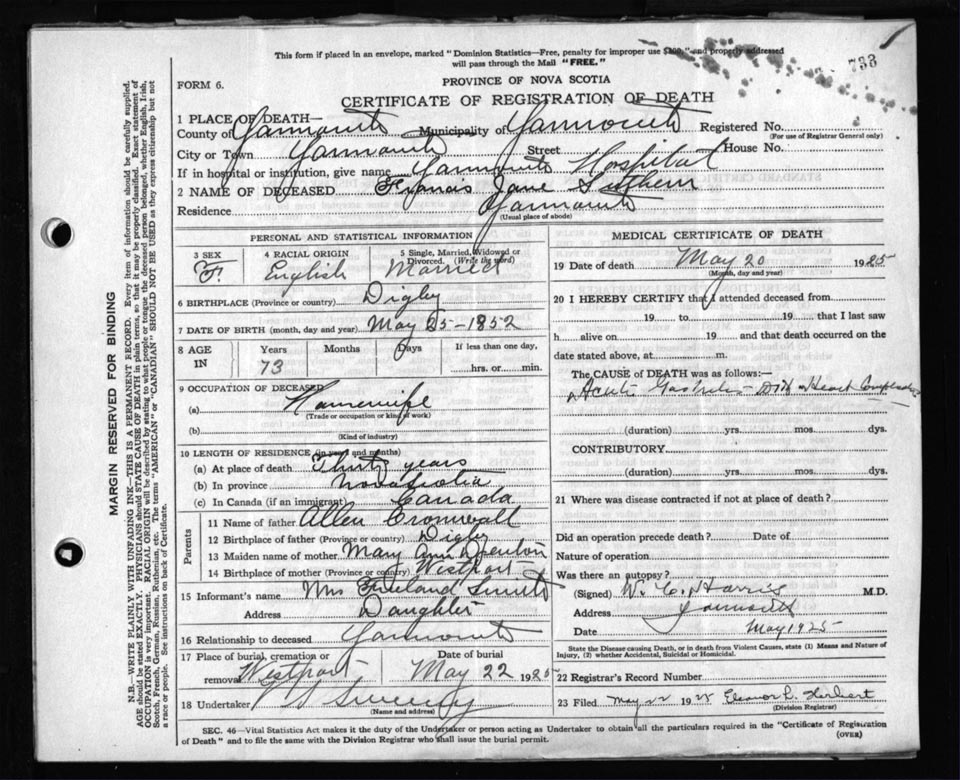 This form if placed in an envelope, marked "Dominion Statistics—Free, penalty for improper use $300," and properly addressed
will pass through the Mail "FREE."
733
FORM 6.
PROVINCE OF NOVA SCOTIA
CERTIFICATE OF REGISTRATION OF DEATH
1 PLACE OF DEATH—
County of Yarmouth Municipality of Yarmouth Registered No.
(For use of Registrar General only)
City or Town Yarmouth Street House No.
If in hospital or institution, give name Yarmouth Hospital
2 NAME OF DECEASED Francis Jane
Residence Yarmouth
(Usual place of abode)
PERSONAL AND STATISTICAL INFORMATION
3 SEX F.
4 RACIAL ORIGIN English
5 Single, Married, Widowed or Divorced. (Write the word) Married
6 BIRTHPLACE (Province or country) Digby
7 DATE OF BIRTH (month, day and year) May 25-1852
8 AGE IN
Years Months Days If less than one day,
73 hrs. or min.
9 OCCUPATION OF DECEASED
(a) Housewife
(Trade or occupation or kind of work)
(b)
(Kind of industry)
10 LENGTH OF RESIDENCE (in years and months)
(a) At place of death Thirty years
(b) In province Nova Scotia
(c) In Canada (if an immigrant) Canada
Parents
11 Name of father Allen Cromwell
12 Birthplace of father (Province or country) Digby
13 Maiden name of mother Mary Ann Denton
14 Birthplace of mother (Province or country) Westport
15 Informant's name Mrs Smith
Address Daughter
16 Relationship to deceased Yarmouth
17 Place of burial, cremation or removal Westport
Date of burial May 22 1925
18 Undertaker Sweeny
(Name and address)
MEDICAL CERTIFICATE OF DEATH
19 Date of death May 20 1925
(Month, day and year)
20 I HEREBY CERTIFY that I attended deceased from
19 to 19 that I last saw
h alive on 19 and that death occurred on the
date stated above, at m.
The CAUSE OF DEATH was as follows:—
Acute Gastritis - Heart
(duration) yrs. mos. dys.
CONTRIBUTORY
(duration) yrs. mos. dys.
21 Where was disease contracted if not at place of death?
Did an operation precede death? Date of
Nature of operation
Was there an autopsy?
(Signed) W. C. Harris M.D.
Address Yarmouth
Date May 1925
State the Disease causing Death, or in death from Violent Causes, state (1) Means and Nature of
Injury, (2) whether Accidental, Suicidal or Homicidal.
22 Registrar's Record Number
23 Filed May 22 1925 Eleanor L. Herbert
(Division Registrar)
SEC. 46—Vital Statistics Act makes it the duty of the Undertaker or person acting as Undertaker to obtain all the particulars required in the "Certificate of Registration
of Death" and to file the same with the Division Registrar who shall issue the burial permit.
(OVER)
MARGIN RESERVED FOR BINDING
N.B.—WRITE PLAINLY WITH UNFADING INK—THIS IS A PERMANENT RECORD. Every item of information should be carefully supplied.
AGE should be stated EXACTLY. PHYSICIANS should STATE CAUSE OF DEATH in plain terms, so that it may be properly classified. Exact statement of
OCCUPATION is very important. RACIAL ORIGIN will be described by stating to what people or tongue the deceased person belonged, whether English, Irish,
Scotch, French, German, Russian, Ruthenian, etc. The terms "AMERICAN" or "CANADIAN" SHOULD NOT BE USED as they express citizenship but not
a race or people. See instructions on back of Certificate.